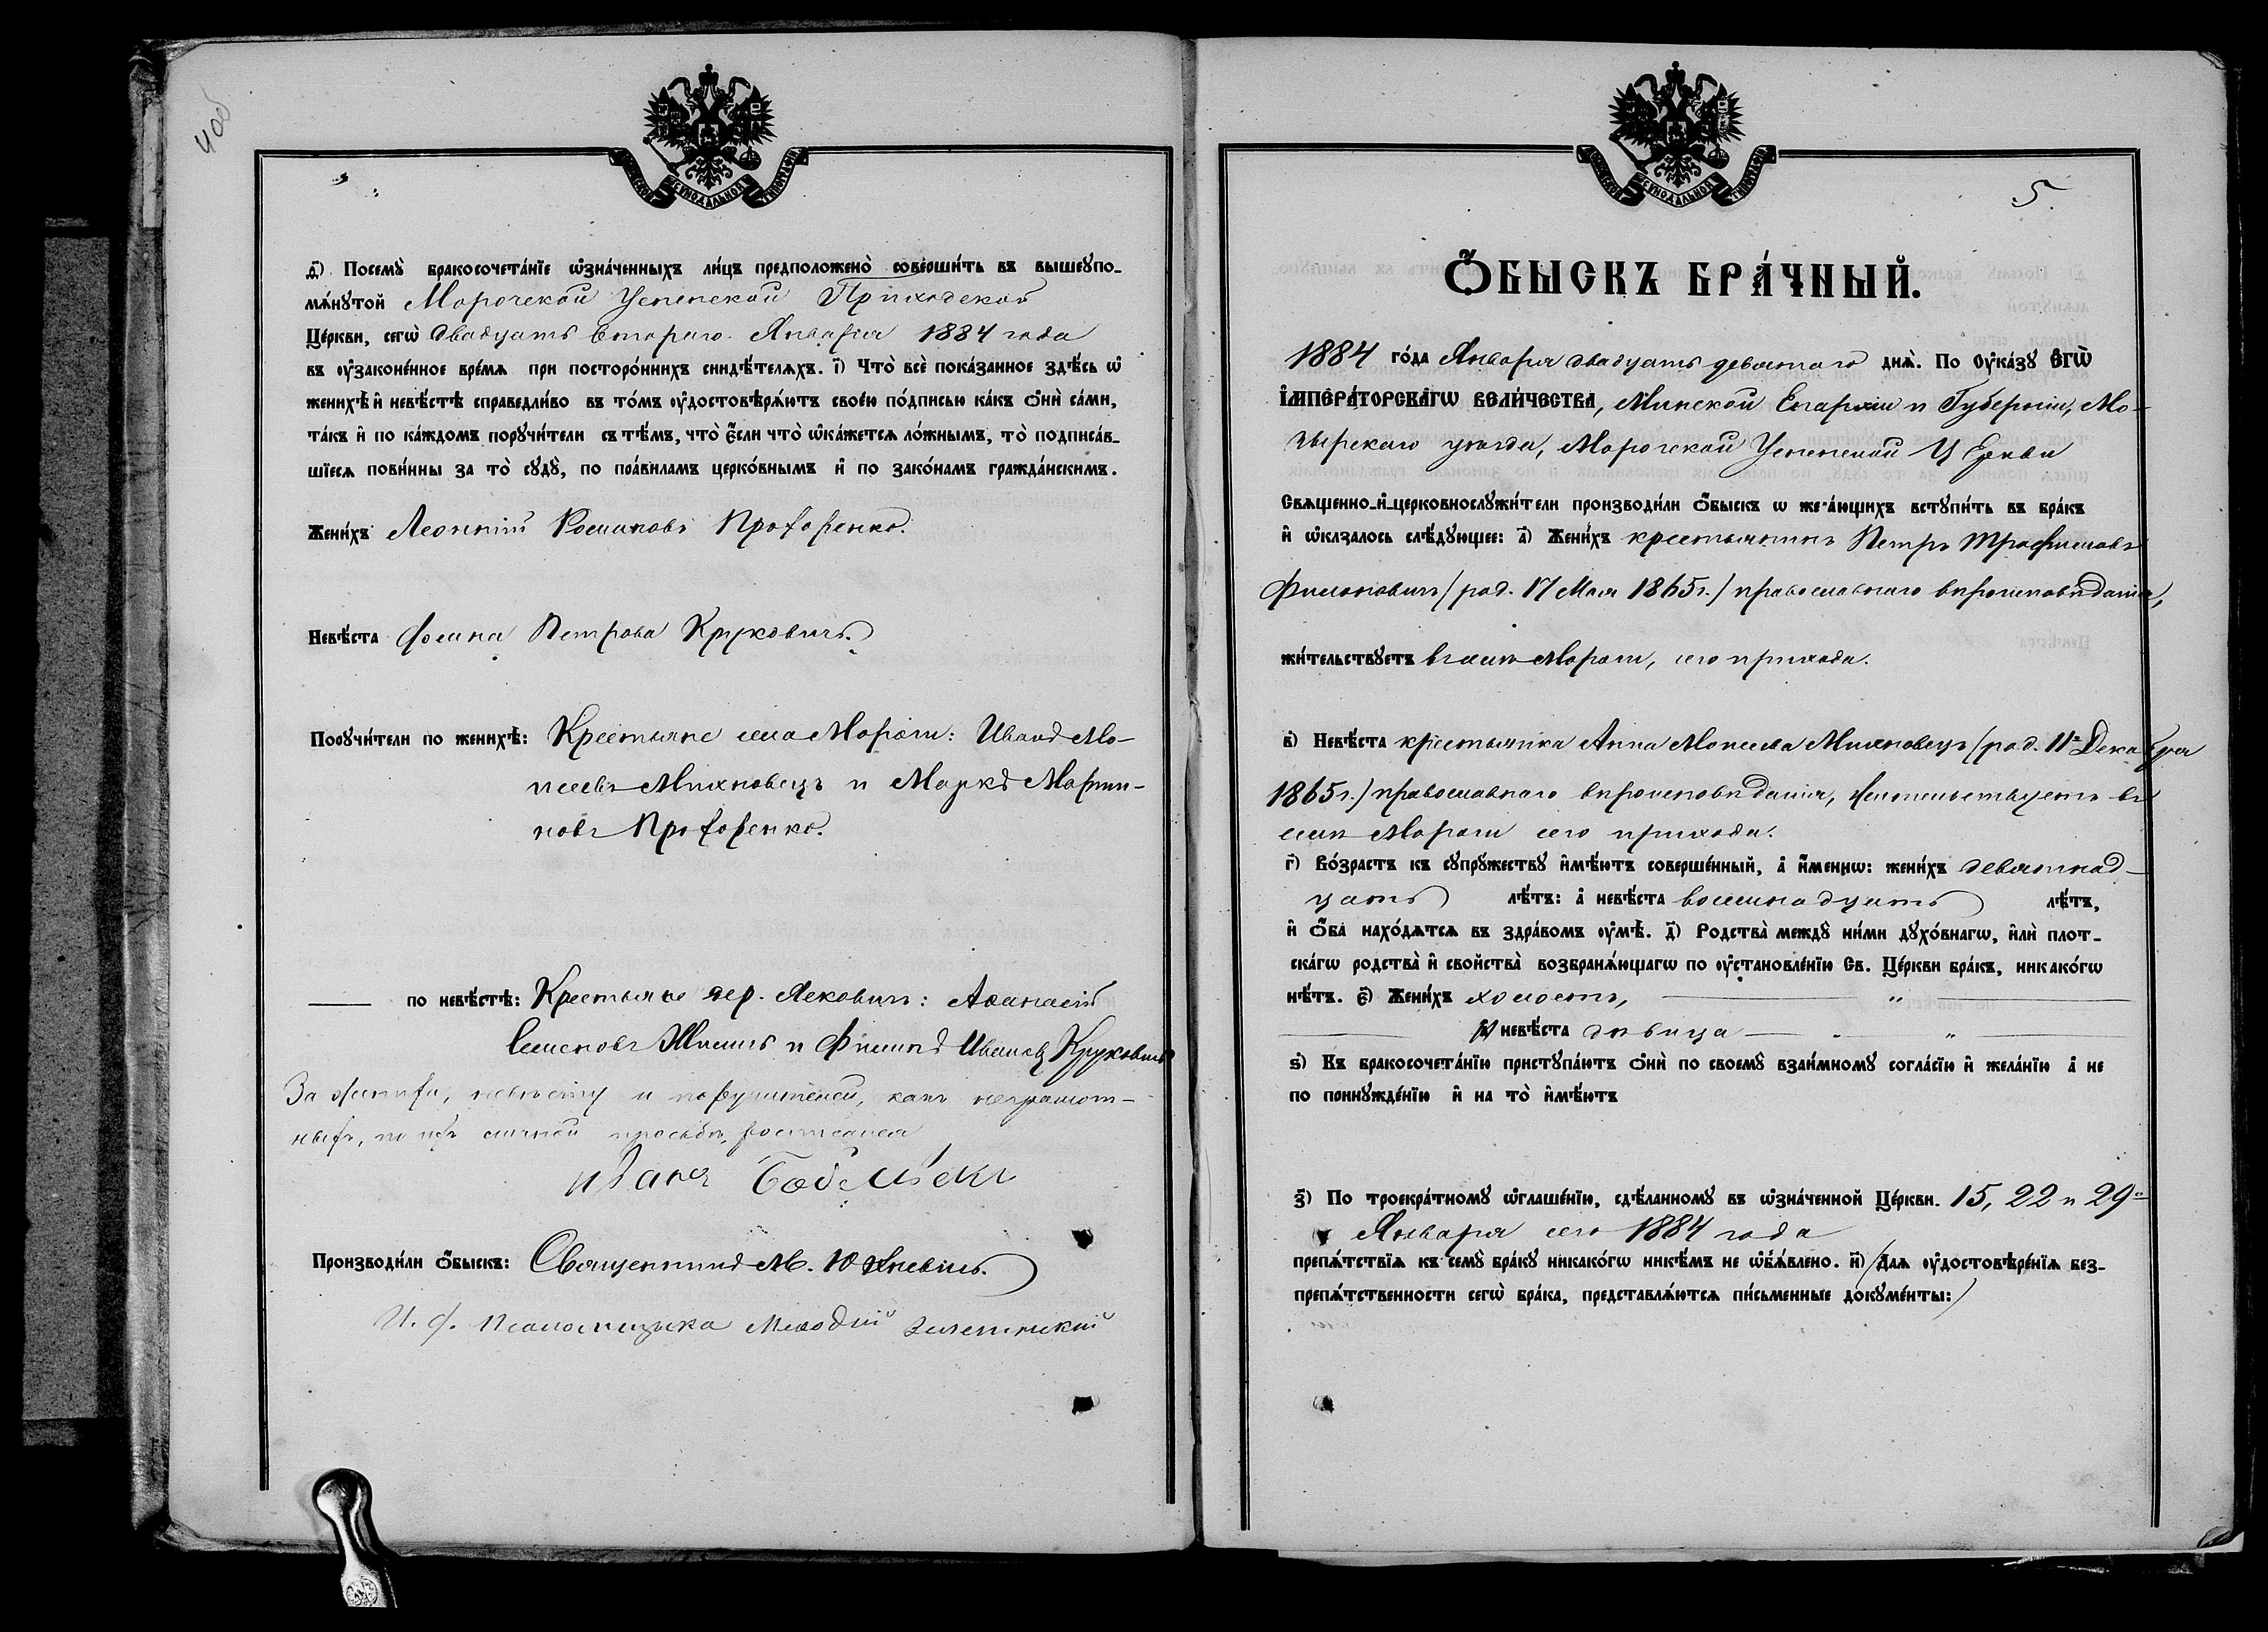 4об
МОСКОВСКОЙ СУНОДАЛЬНОЙ ТИПОГРАФІИ
д҃) Посемꙋ̀ бракосочета́нїе ѡ҆зна́ченныхъ ли́цъ предположено̀ соверши́ть въ вышеꙋпо-
мѧ́нꙋтой Морочской Успенской Приходской
Це́ркви, сегѡ̀ двадцать втораго Января 1884 года
въ ᲂу҆законе́нное вре́мѧ при посторо́ннихъ свидѣ́телѧхъ. і҃) Что̀ всѐ пока́занное здѣ́сь ѡ҆
женихѣ̀ и҆ невѣ́стѣ справедли́во въ то́мъ ᲂу҆достовѣрѧ́ютъ свое́ю по́дписью ка́къ ѻ҆нѝ са́ми,
та́къ и҆ по ка́ждомъ порꙋчи́тели съ тѣ́мъ, что̀ є҆́сли что̀ ѡ҆ка́жетсѧ ло́жнымъ, то̀ подписа́в-
шїесѧ пови́нны за то̀ сꙋдꙋ̀, по пра́виламъ церко́внымъ и҆ по зако́намъ гражда́нскимъ.
Жени́хъ Леонтій Романовъ Прохоренко.
Невѣ́ста Фекла Петрова Круковичъ.
Порꙋчи́тели по женихѣ̀: Крестьяне села Морочи: Иванъ Мо-
исеевъ Михновецъ и Маркъ Марти-
новъ Прохоренко.
по невѣ́стѣ: Крестьяне дер. Лековичъ: Афанасій
Семеновъ Жиличъ и Филипъ Ивановъ Круковичъ
За жениха, невѣсту и поручителей, какъ неграмот-
ныхъ, по ихъ личной просьбѣ, росписался
Производи́ли ѻ҆́быскъ: Священникъ М. Юхневичъ.
И. д. псаломщика Меѳодій
МОСКОВСКОЙ СУНОДАЛЬНОЙ ТИПОГРАФІИ
5.
Ѻ҆́БЫСКЪ БРА́ЧНЫЙ.
1884 го́да Января двадцать девятаго днѧ̀. По Оу҆ка́зꙋ Є҆ГѠ̀
І҆МПЕРА́ТОРСКАГѠ ВЕЛИ́ЧЕСТВА, Минской Епархіи и Губерніи, Мо-
зырскаго уѣзда, Морочской Успенской Церкви
Свѧщенно-и҆-церковнослꙋжи́тели производи́ли ѻ҆́быскъ ѡ желающихъ встꙋпи́ть въ бра́къ
и҆ ѡ҆казалось слѣ́дꙋющее: а҃) Жени́хъ крестьянинъ Петръ Трофимовъ
Филоновичъ /род. 17 Мая 1865г./ православнаго вѣроисповѣданія,
жи́тельствꙋетъ въ селѣ Морочи, сего прихода.
в҃) Невѣ́ста крестьянка Анна Моисеева Михновецъ /род. 11го Декабря
1865г./ православнаго вѣроисповѣданія, жительствуетъ въ
селѣ Морочи сего прихода.
г҃) Во́зрастъ къ сꙋпрꙋжествꙋ и҆мѣ́ютъ соверше́нный, а҆ и҆́меннѡ: жени́хъ девятнад-
цать лѣ́тъ: а҆ невѣ́ста восемнадцать лѣ́тъ,
и҆ ѻ҆́ба нахо́дѧтсѧ въ здра́вомъ ᲂу҆мѣ̀. д҃) Родства̀ междꙋ̀ ни́ми дꙋхо́внагѡ, и҆лѝ плот-
скагѡ родства̀ и҆ свойства̀ возбранѧ́ющагѡ по ᲂу҆становле́нїю Св. Це́ркви бра́къ, никако́гѡ
нѣ́тъ. є҃) Жени́хъ холостъ, "
и невѣ́ста дѣвица " "
ѕ҃) Къ бракосочета́нїю пристꙋпа́ютъ ѻ҆нѝ по своемꙋ̀ взаи́мномꙋ согла́сїю и҆ жела́нїю а҆ не
по принꙋжде́нїю и҆ на то̀ и҆мѣ́ютъ
з҃) По троекра́тномꙋ ѡ҆глаше́нїю, сдѣ́ланномꙋ въ ѡ҆зна́ченной Це́ркви. 15, 22 и 29го
Января сего 1884 года
препѧ́тствїѧ къ семꙋ̀ бра́кꙋ никако́гѡ никѣ́мъ не ѡ҆б̾ѧ́влено. и҃) /Длѧ ᲂу҆достовѣре́нїѧ без-
препѧ́тственности сегѡ̀ бра́ка, представлѧ́ютсѧ пи́сьменные докꙋме́нты:/